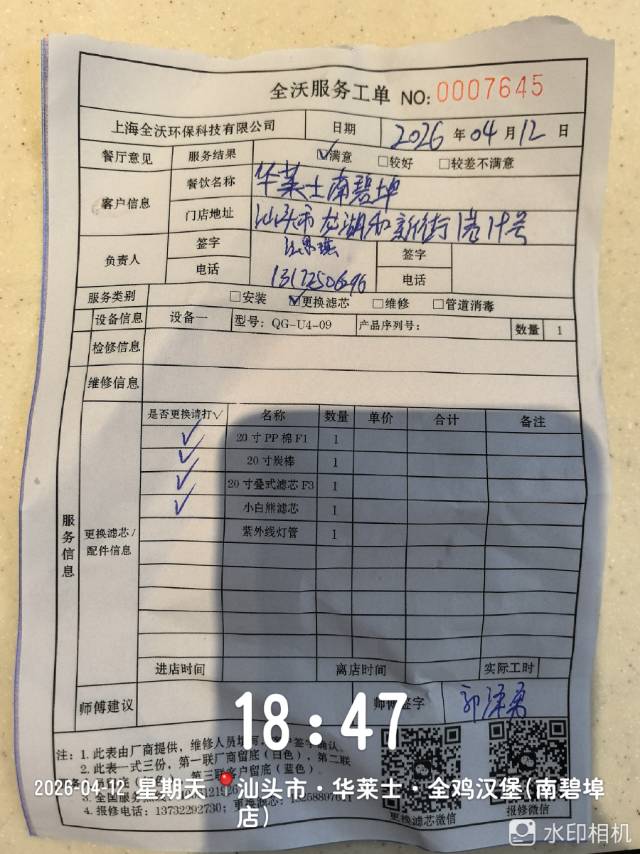 全沃服务工单 NO:0007645
上海全沃环保科技有限公司 日期 2026 年 04 月 12 日
餐厅意见 服务结果 ☑满意 □较好 □较差不满意
客户信息 餐饮名称 华莱士南碧埠
门店地址 汕头市龙湖和新街1巷19号
负责人 签字 签字
电话 电话
服务类别 □安装 ☑更换滤芯 □维修 □管道消毒
设备信息 设备一 型号: QG-U4-09 产品序列号: 数量 1
检修信息
维修信息
服务信息
更换滤芯/配件信息
是否更换请打√ 名称 数量 单价 合计 备注
✓ 20寸PP棉F1 1
✓ 20寸炭棒 1
✓ 20寸叠式滤芯F3 1
✓ 小白熊滤芯 1
紫外线灯管 1
进店时间 离店时间 实际工时
师傅建议 师傅签字
18:47
注: 1. 此表由厂商提供, 维修人员填写
2. 此表一式三份, 第一联厂商留底(白色), 第二联
第三联客户留底(蓝色).
3. 全国服务热线
4. 报修电话: 13732292730; 更换滤芯:
更换滤芯微信 报修微信
2026-04-12 星期天 汕头市·华莱士·全鸡汉堡(南碧埠店)
水印相机